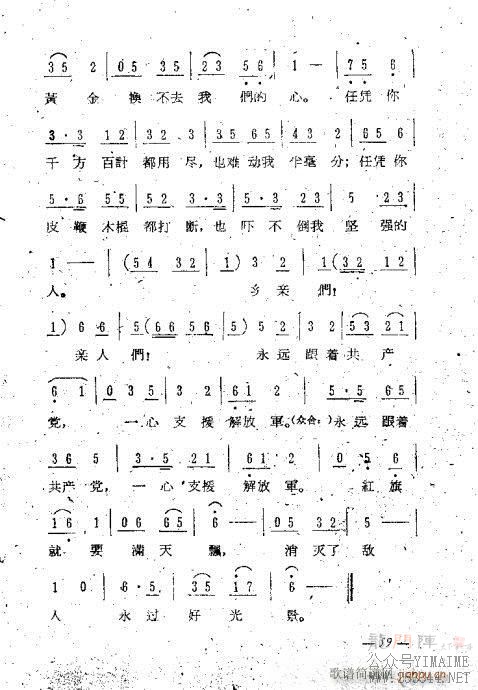 3 5 2 | 0 5 3 5 | 3 5 2 | 2 3 5 6 | 1 — | 7 5 6 |
黃金換不去我們的心。任凭你
3·3 1 2 | 3 2 2 3 2 | 3 5 6 5 | 4·3 2 | 5 6 5 6 |
千方百計都用尽,也难动我半毫分;任凭你
5·6 5 5 | 5 3 2 | 2·3 0 3 | 2 3 5 | 5 2 3 |
皮鞭木棍都打断,也吓不倒我坚强的
1 — — | (5 4 3 2 | 1 2) | 3 2 | 1 (3 2 1 2 |
人。乡亲們!
1) 6 6 | 5 (6 6 5 6 | 5) 3 | 2 1 | 3 2 | 5 3 2 1 |
亲人們!永远跟着共产
6 1 | 0 3 5 | 3 2 | 6 1 2 | 5·5 6 5 |
党,一心支援解放軍。(众合:)永远跟着
3 6 5 | 3·5 2 1 | 3 5 | 6 1 2 | 3 6 |
共产党,一心支援解放軍。紅旗
1 6 1 | 0 6 6 5 | 6· | 0 5 3 2 | 6 — |
就要满天飄,消灭了敌
1 0 | 6·5 | 3 5 1 7 | 6 — ‖
人永过好光景。
— 39 —
公众号YIMAIME
歌谱简谱网